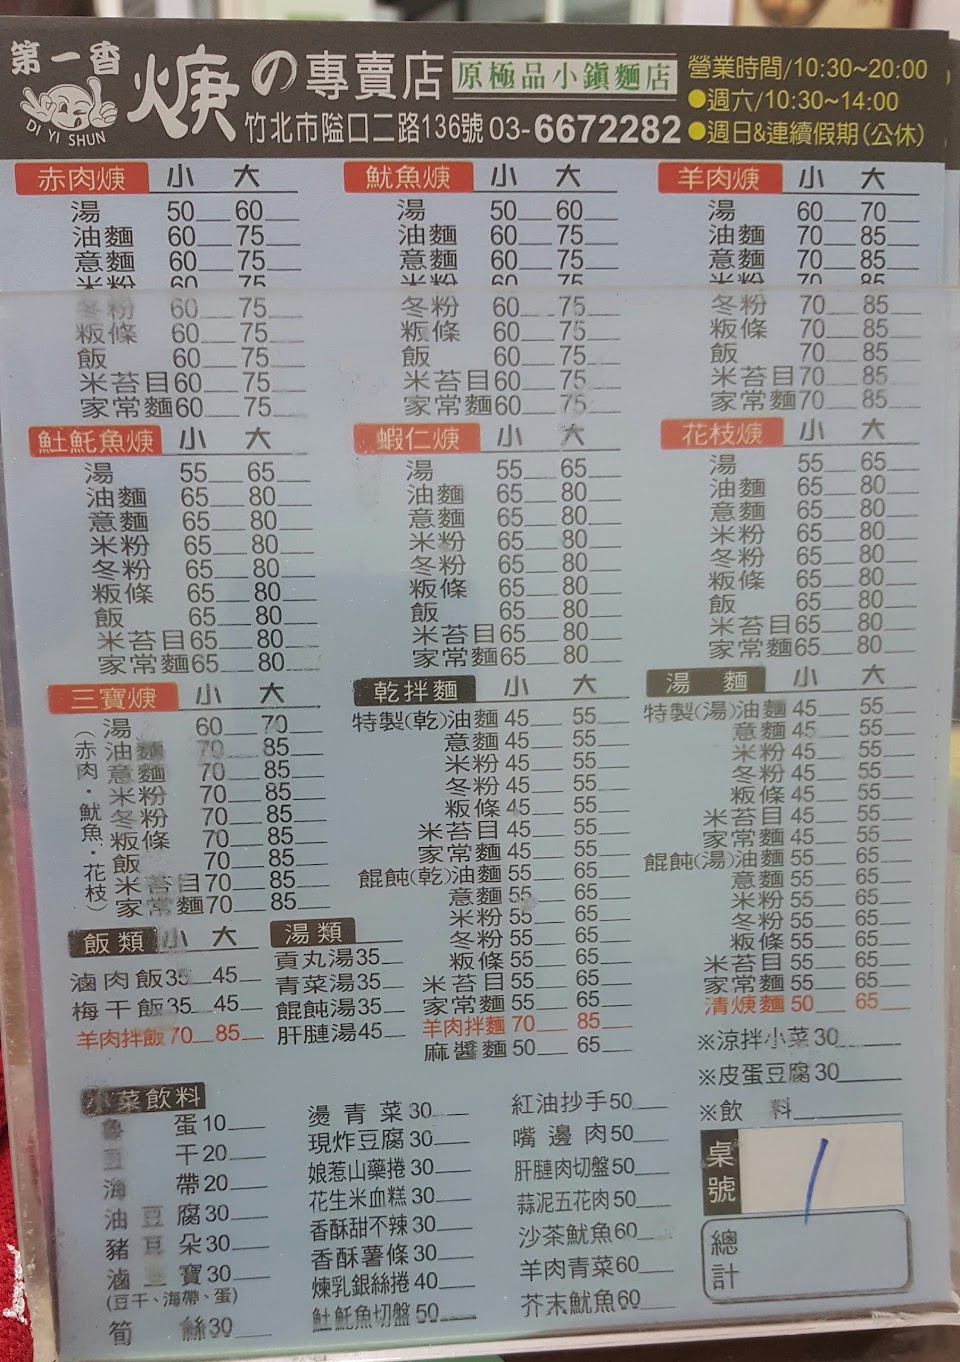 第一香
DI YI SHUN
焿の專賣店
原極品小鎮麵店
竹北市隘口二路136號 03-6672282
營業時間/10:30~20:00
●週六/10:30~14:00
●週日&連續假期(公休)
赤肉焿 小 大
湯 50 60
油麵 60 75
意麵 60 75
米粉 60 75
冬粉 60 75
粄條 60 75
飯 60 75
米苔目 60 75
家常麵 60 75
魷魚焿 小 大
湯 50 60
油麵 60 75
意麵 60 75
米粉 60 75
冬粉 60 75
粄條 60 75
飯 60 75
米苔目 60 75
家常麵 60 75
羊肉焿 小 大
湯 60 70
油麵 70 85
意麵 70 85
米粉 70 85
冬粉 70 85
粄條 70 85
飯 70 85
米苔目 70 85
家常麵 70 85
𩵚魠魚焿 小 大
湯 55 65
油麵 65 80
意麵 65 80
米粉 65 80
冬粉 65 80
粄條 65 80
飯 65 80
米苔目 65 80
家常麵 65 80
蝦仁焿 小 大
湯 55 65
油麵 65 80
意麵 65 80
米粉 65 80
冬粉 65 80
粄條 65 80
飯 65 80
米苔目 65 80
家常麵 65 80
花枝焿 小 大
湯 55 65
油麵 65 80
意麵 65 80
米粉 65 80
冬粉 65 80
粄條 65 80
飯 65 80
米苔目 65 80
家常麵 65 80
三寶焿 小 大
(赤肉·魷魚·花枝)
湯 60 70
油麵 70 85
意麵 70 85
米粉 70 85
冬粉 70 85
粄條 70 85
飯 70 85
米苔目 70 85
家常麵 70 85
乾拌麵 小 大
特製(乾)油麵 45 55
意麵 45 55
米粉 45 55
冬粉 45 55
粄條 45 55
米苔目 45 55
家常麵 45 55
餛飩(乾)油麵 55 65
意麵 55 65
米粉 55 65
冬粉 55 65
粄條 55 65
米苔目 55 65
家常麵 55 65
羊肉拌麵 70 85
麻醬麵 50 65
湯麵 小 大
特製(湯)油麵 45 55
意麵 45 55
米粉 45 55
冬粉 45 55
粄條 45 55
米苔目 45 55
家常麵 45 55
餛飩(湯)油麵 55 65
意麵 55 65
米粉 55 65
冬粉 55 65
粄條 55 65
米苔目 55 65
家常麵 55 65
清焿麵 50 65
※涼拌小菜 30
※皮蛋豆腐 30
※飲料
飯類 小 大
滷肉飯 35 45
梅干飯 35 45
羊肉拌飯 70 85
湯類
貢丸湯 35
青菜湯 35
餛飩湯 35
肝腱湯 45
小菜飲料
魯蛋 10
豆干 20
海帶 20
油豆腐 30
豬豆朵 30
滷三寶 30
(豆干、海帶、蛋)
筍絲 30
燙青菜 30
現炸豆腐 30
娘惹山藥捲 30
花生米血糕 30
香酥甜不辣 30
香酥薯條 30
煉乳銀絲捲 40
𩵚魠魚切盤 50
紅油抄手 50
嘴邊肉 50
肝腱肉切盤 50
蒜泥五花肉 50
沙茶魷魚 60
羊肉青菜 60
芥末魷魚 60
桌號 1
總計